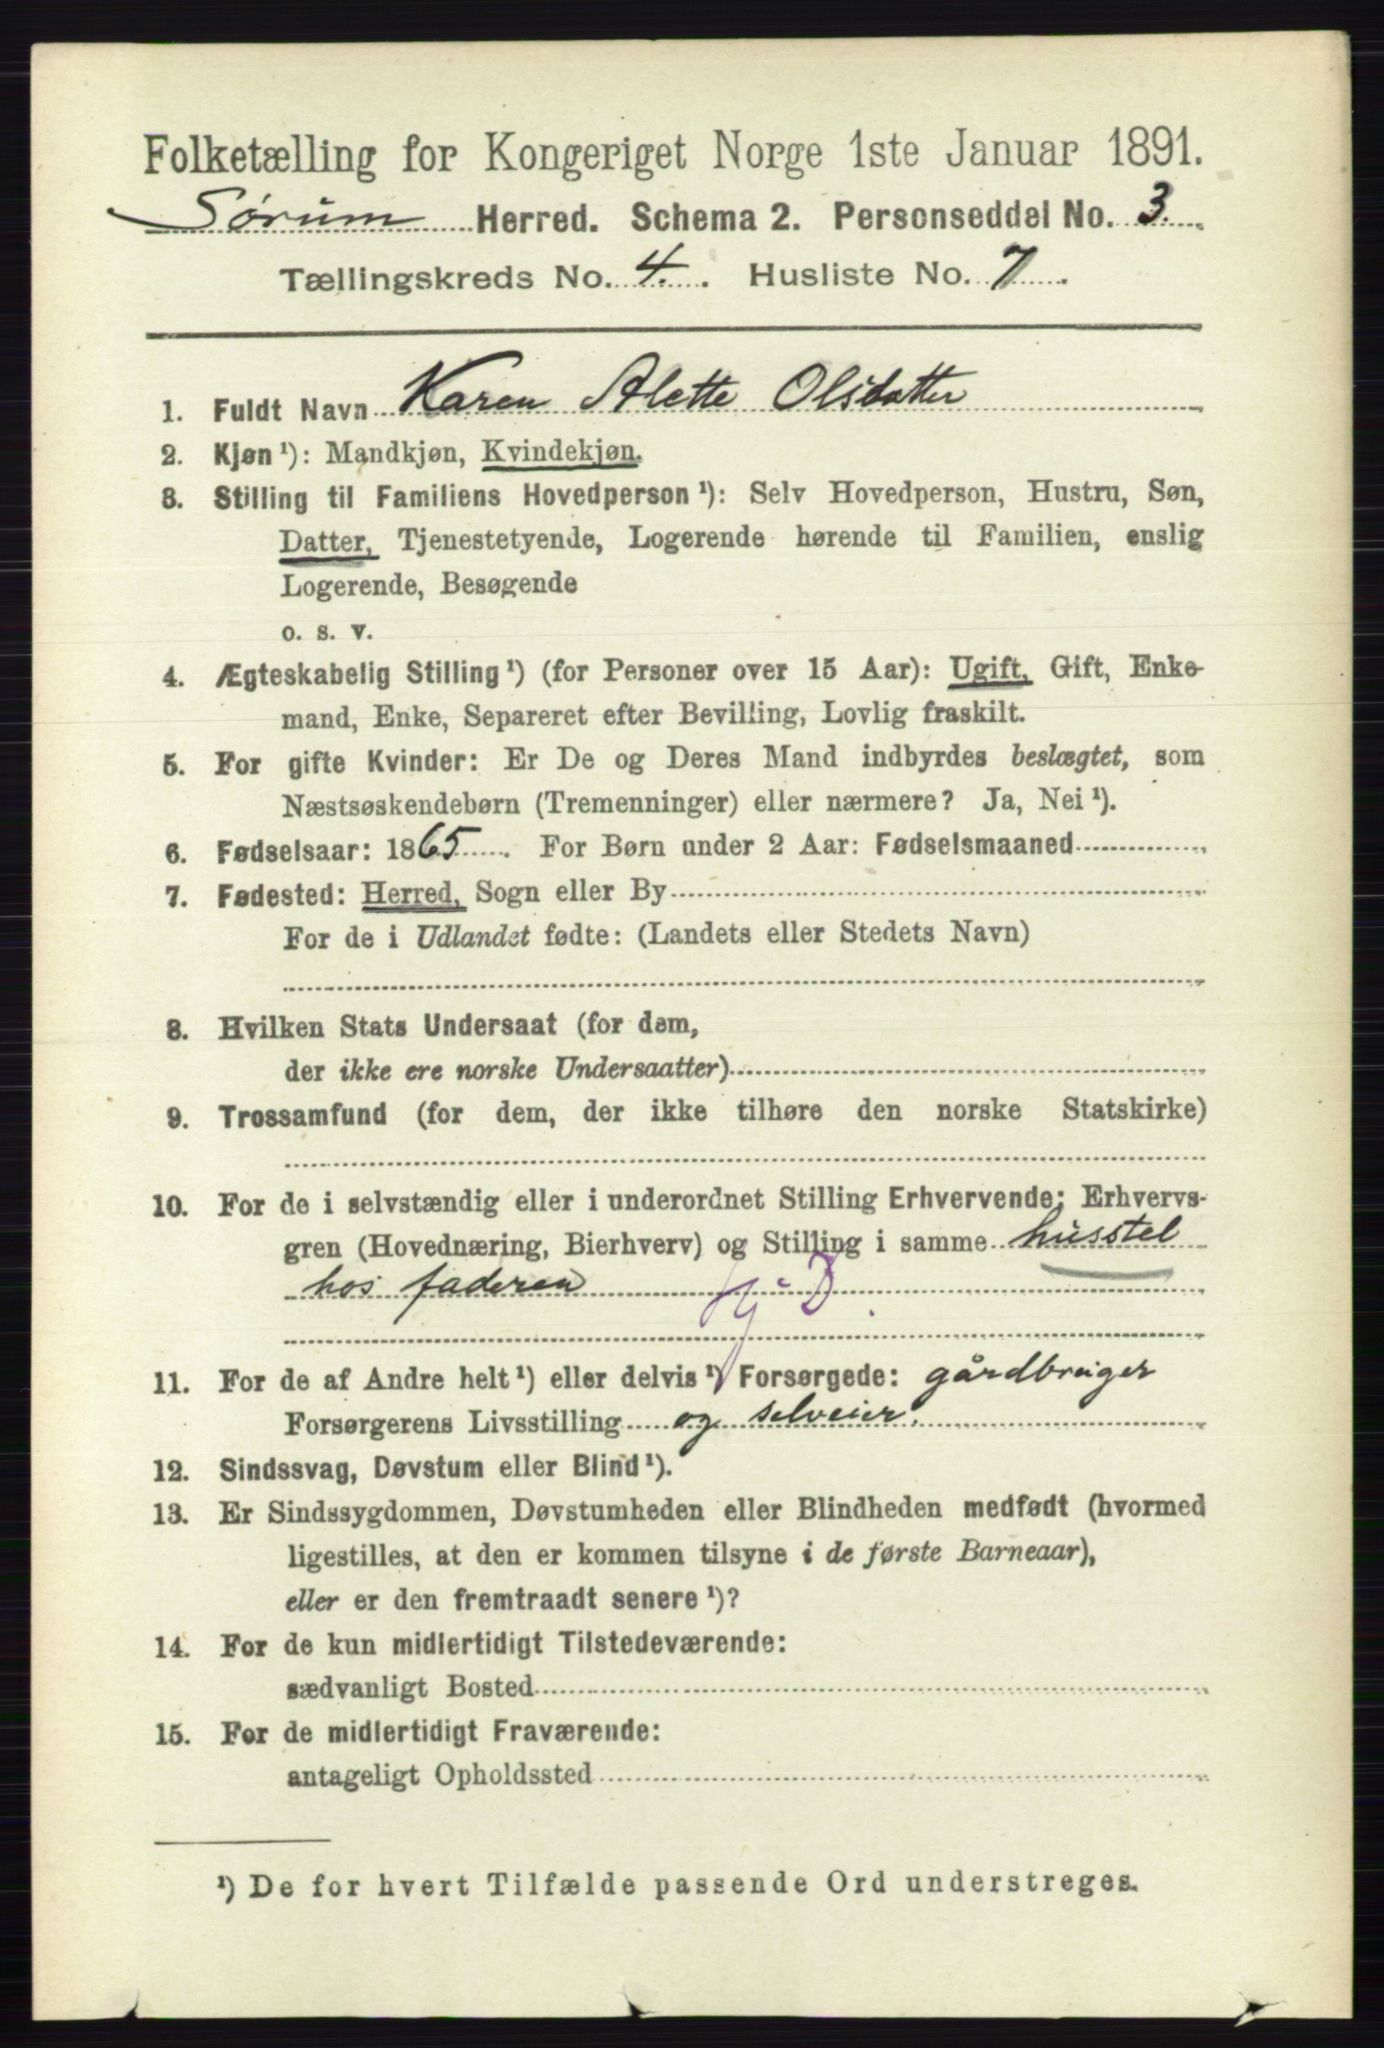 Folketælling for Kongeriget Norge 1ste Januar 1891.
Sørum Herred. Schema 2. Personseddel No. 3.
Tællingskreds No. 4. Husliste No. 7.
1. Fuldt Navn Karen Alette Olsdatter
2. Kjøn ¹): Mandkjøn, Kvindekjøn.
3. Stilling til Familiens Hovedperson ¹): Selv Hovedperson, Hustru, Søn,
Datter, Tjenestetyende, Logerende hørende til Familien, enslig
Logerende, Besøgende
o. s. v.
4. Ægteskabelig Stilling ¹) (for Personer over 15 Aar): Ugift, Gift, Enke-
mand, Enke, Separeret efter Bevilling, Lovlig fraskilt.
5. For gifte Kvinder: Er De og Deres Mand indbyrdes beslægtet, som
Næstsøskendebørn (Tremenninger) eller nærmere? Ja, Nei ¹).
6. Fødselsaar: 1865. For Børn under 2 Aar: Fødselsmaaned
7. Fødested: Herred, Sogn eller By
For de i Udlandet fødte: (Landets eller Stedets Navn)
8. Hvilken Stats Undersaat (for dem,
der ikke ere norske Undersaatter)
9. Trossamfund (for dem, der ikke tilhøre den norske Statskirke)
10. For de i selvstændig eller i underordnet Stilling Erhvervende: Erhvervs-
gren (Hovednæring, Bierhverv) og Stilling i samme husstel
hos faderen
11. For de af Andre helt ¹) eller delvis ¹) Forsørgede: gårdbruger
Forsørgerens Livsstilling og selveier.
12. Sindssvag, Døvstum eller Blind ¹).
13. Er Sindssygdommen, Døvstumheden eller Blindheden medfødt (hvormed
ligestilles, at den er kommen tilsyne i de første Barneaar),
eller er den fremtraadt senere ¹)?
14. For de kun midlertidigt Tilstedeværende:
sædvanligt Bosted
15. For de midlertidigt Fraværende:
antageligt Opholdssted
¹) De for hvert Tilfælde passende Ord understreges.